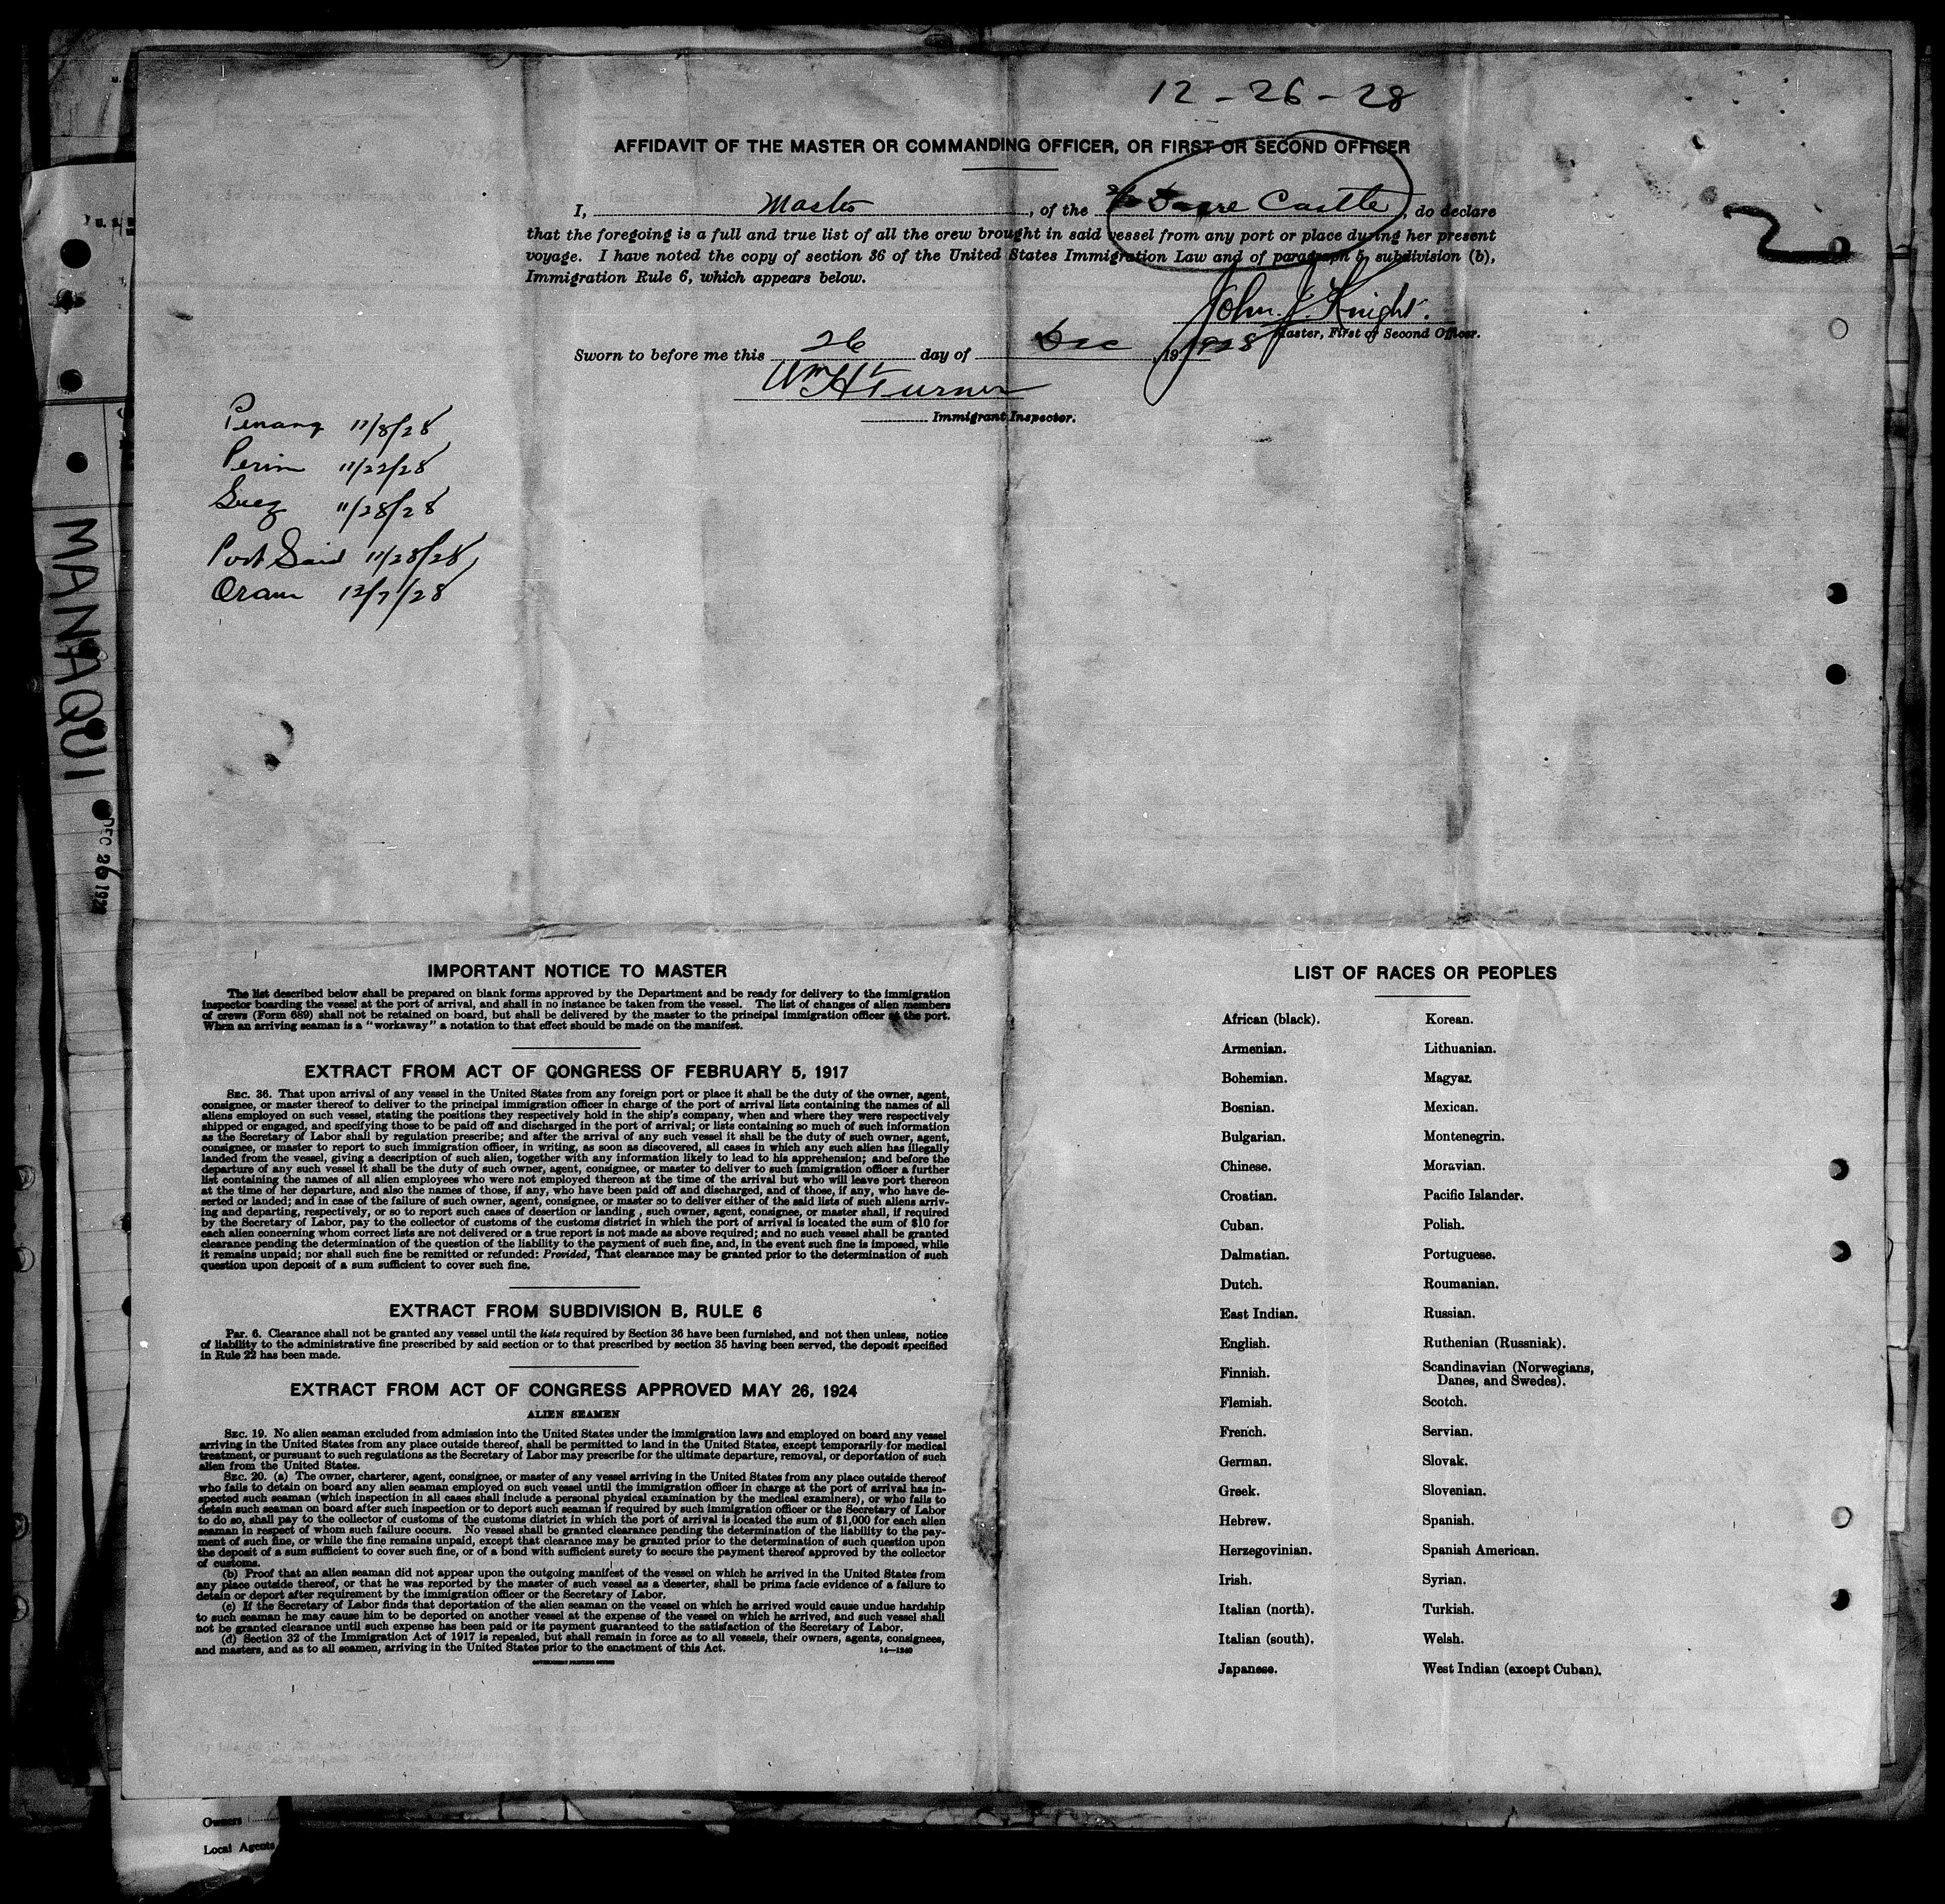 12-26-28
AFFIDAVIT OF THE MASTER OR COMMANDING OFFICER, OR FIRST OR SECOND OFFICER
I, Master, of the Castle, do declare
that the foregoing is a full and true list of all the crew brought in said vessel from any port or place during her present
voyage. I have noted the copy of section 36 of the United States Immigration Law and of paragraph 5, subdivision (b),
Immigration Rule 6, which appears below.
2
John J. Knight.
Master, First or Second Officer.
Sworn to before me this 26 day of Dec, 19 1928
Wm H Turner
Immigrant Inspector.
Penang 11/8/28
Perim 11/22/28
Suez 11/28/28
Port Said 11/28/28
Oran 12/7/28
MANAQUI
DEC 26 192
IMPORTANT NOTICE TO MASTER
The list described below shall be prepared on blank forms approved by the Department and be ready for delivery to the immigration
inspector boarding the vessel at the port of arrival, and shall in no instance be taken from the vessel. The list of changes of alien members
of crews (Form 689) shall not be retained on board, but shall be delivered by the master to the principal immigration officer at the port.
When an arriving seaman is a "workaway" a notation to that effect should be made on the manifest.
EXTRACT FROM ACT OF CONGRESS OF FEBRUARY 5, 1917
SEC. 36. That upon arrival of any vessel in the United States from any foreign port or place it shall be the duty of the owner, agent,
consignee, or master thereof to deliver to the principal immigration officer in charge of the port of arrival lists containing the names of all
aliens employed on such vessel, stating the positions they respectively hold in the ship's company, when and where they were respectively
shipped or engaged, and specifying those to be paid off and discharged in the port of arrival; or lists containing so much of such information
as the Secretary of Labor shall by regulation prescribe; and after the arrival of any such vessel it shall be the duty of such owner, agent,
consignee, or master to report to such immigration officer, in writing, as soon as discovered, all cases in which any such alien has illegally
landed from the vessel, giving a description of such alien, together with any information likely to lead to his apprehension; and before the
departure of any such vessel it shall be the duty of such owner, agent, consignee, or master to deliver to such immigration officer a further
list containing the names of all alien employees who were not employed thereon at the time of the arrival but who will leave port thereon
at the time of her departure, and also the names of those, if any, who have been paid off and discharged, and of those, if any, who have de-
serted or landed; and in case of the failure of such owner, agent, consignee, or master so to deliver either of the said lists of such aliens arriv-
ing and departing, respectively, or so to report such cases of desertion or landing, such owner, agent, consignee, or master shall, if required
by the Secretary of Labor, pay to the collector of customs of the customs district in which the port of arrival is located the sum of $10 for
each alien concerning whom correct lists are not delivered or a true report is not made as above required; and no such vessel shall be granted
clearance pending the determination of the question of the liability to the payment of such fine, and, in the event such fine is imposed, while
it remains unpaid; nor shall such fine be remitted or refunded: Provided, That clearance may be granted prior to the determination of such
question upon deposit of a sum sufficient to cover such fine.
EXTRACT FROM SUBDIVISION B, RULE 6
Par. 6. Clearance shall not be granted any vessel until the lists required by Section 36 have been furnished, and not then unless, notice
of liability to the administrative fine prescribed by said section or to that prescribed by section 35 having been served, the deposit specified
in Rule 22 has been made.
EXTRACT FROM ACT OF CONGRESS APPROVED MAY 26, 1924
ALIEN SEAMEN
SEC. 19. No alien seaman excluded from admission into the United States under the immigration laws and employed on board any vessel
arriving in the United States from any place outside thereof, shall be permitted to land in the United States, except temporarily for medical
treatment, or pursuant to such regulations as the Secretary of Labor may prescribe for the ultimate departure, removal, or deportation of such
alien from the United States.
SEC. 20. (a) The owner, charterer, agent, consignee, or master of any vessel arriving in the United States from any place outside thereof
who fails to detain on board any alien seaman employed on such vessel until the immigration officer in charge at the port of arrival has in-
spected such seaman (which inspection in all cases shall include a personal physical examination by the medical examiners), or who fails to
detain such seaman on board after such inspection or to deport such seaman if required by such immigration officer or the Secretary of Labor
to do so, shall pay to the collector of customs of the customs district in which the port of arrival is located the sum of $1,000 for each alien
seaman in respect of whom such failure occurs. No vessel shall be granted clearance pending the determination of the liability to the pay-
ment of such fine, or while the fine remains unpaid, except that clearance may be granted prior to the determination of such question upon
the deposit of a sum sufficient to cover such fine, or of a bond with sufficient surety to secure the payment thereof approved by the collector
of customs.
(b) Proof that an alien seaman did not appear upon the outgoing manifest of the vessel on which he arrived in the United States from
any place outside thereof, or that he was reported by the master of such vessel as a deserter, shall be prima facie evidence of a failure to
detain or deport after requirement by the immigration officer or the Secretary of Labor.
(c) If the Secretary of Labor finds that deportation of the alien seaman on the vessel on which he arrived would cause undue hardship
to such seaman he may cause him to be deported on another vessel at the expense of the vessel on which he arrived, and such vessel shall
not be granted clearance until such expense has been paid or its payment guaranteed to the satisfaction of the Secretary of Labor.
(d) Section 32 of the Immigration Act of 1917 is repealed, but shall remain in force as to all vessels, their owners, agents, consignees,
and masters, and as to all seamen, arriving in the United States prior to the enactment of this Act.
GOVERNMENT PRINTING OFFICE
LIST OF RACES OR PEOPLES
African (black). Korean.
Armenian. Lithuanian.
Bohemian. Magyar.
Bosnian. Mexican.
Bulgarian. Montenegrin.
Chinese. Moravian.
Croatian. Pacific Islander.
Cuban. Polish.
Dalmatian. Portuguese.
Dutch. Roumanian.
East Indian. Russian.
English. Ruthenian (Russniak).
Finnish. Scandinavian (Norwegians,
Danes, and Swedes).
Flemish. Scotch.
French. Servian.
German. Slovak.
Greek. Slovenian.
Hebrew. Spanish.
Herzegovinian. Spanish American.
Irish. Syrian.
Italian (north). Turkish.
Italian (south). Welsh.
Japanese. West Indian (except Cuban).
Owners
Local Agents